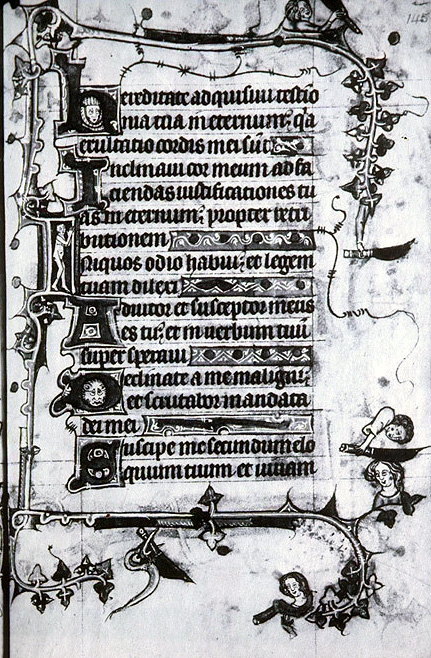 145
Hereditate adquisiui testio
nia tua in eternum; q̃a
exultatio cordis mei sūt
Inclinaui cor meum ad fa
ciendas iustificationes tu
as in eternum; propter retri
butionem
Iniquos odio habui; et legem
tuam dilexi
Adiutor et susceptor meus
es tu; et in uerbum tuū
super speraui
Declinate a me maligni;
et scrutabor mandata
dei mei
Suscipe me secundum elo
quium tuum et uiuam